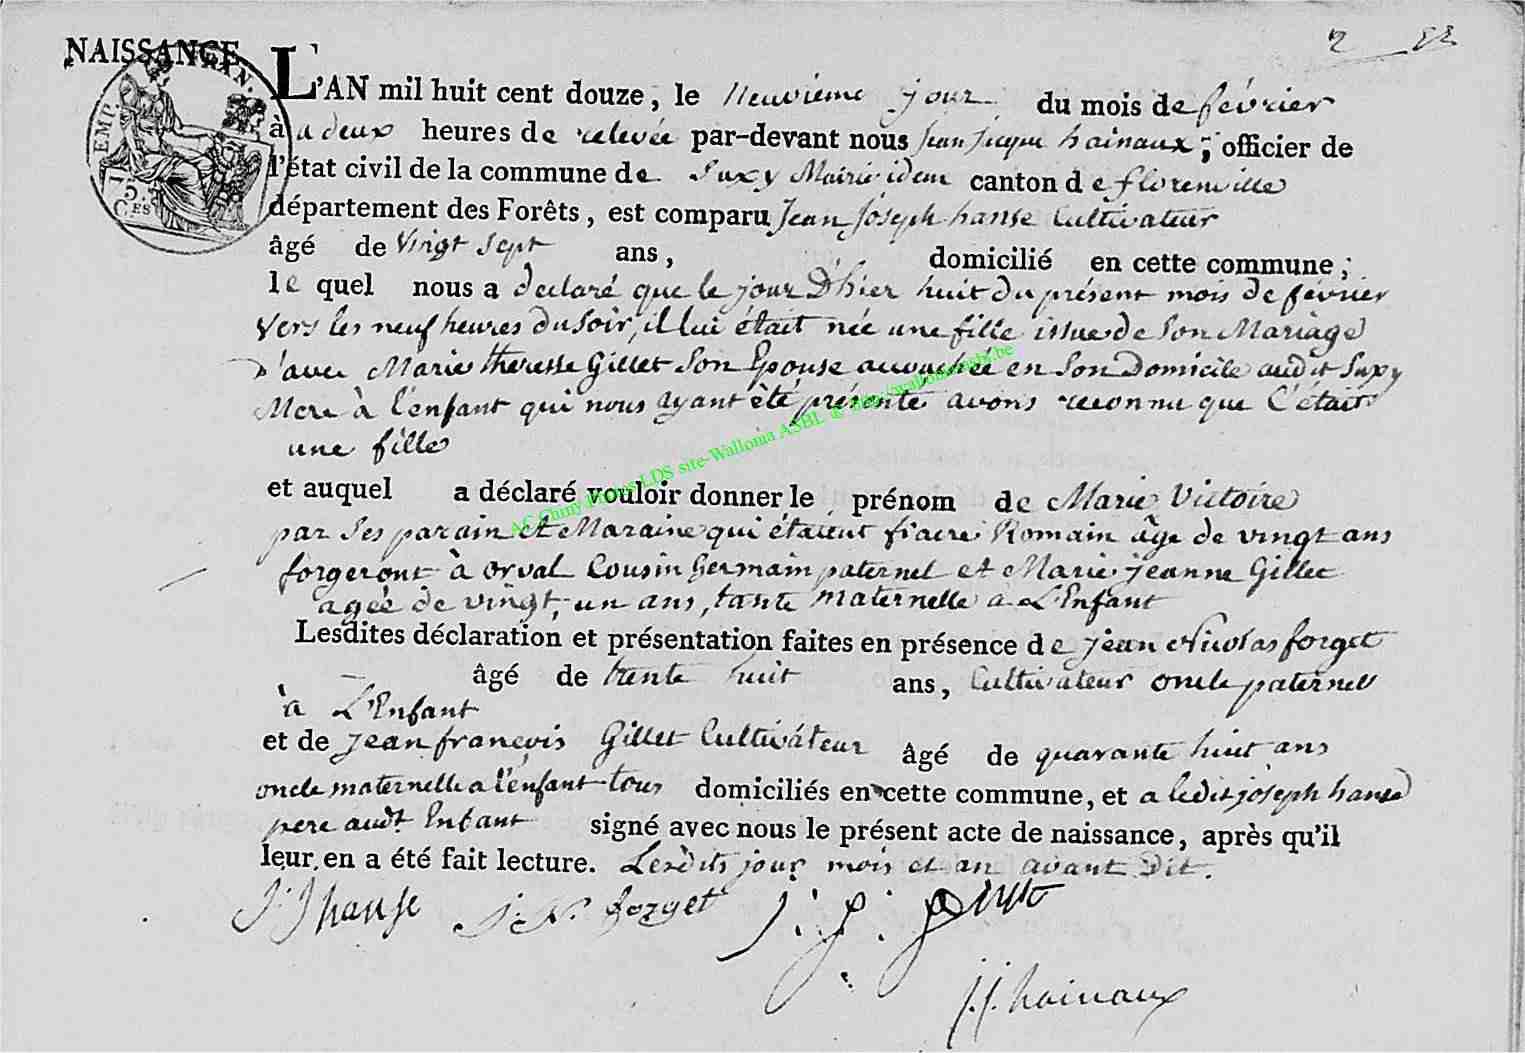 2 22
NAISSANCE
EMP. FRAN.
15. C.ES
L'AN mil huit cent douze, le neuvieme jour du mois de février
à a deux heures de relevée par-devant nous Jean jacque hainaux, officier de
l'état civil de la commune de Suxy Mairie idem canton de florenville
département des Forêts, est comparu Jean Joseph hanse Cultivateur
âgé de Vingt Sept ans, domicilié en cette commune;
le quel nous a declaré que le jour D'hier huit du présent mois de février
Vers les neuf heures du Soir, il lui était née une fille issue de Son Mariage
D'avec Marie theresse Gillet Son Epouse accouchée en Son Domicile audit Suxy
Mere à l'enfant qui nous ayant été présenté avons reconnu que C'était
une fille
et auquel a déclaré vouloir donner le prénom de Marie Victoire
par Ses parain et Maraine qui étaient fiacre Romain âge de vingt ans
forgeront à orval Cousin Germain paternel et Marie jeanne Gillet
agée de vingt-un ans, tante maternelle a L'Enfant
Lesdites déclaration et présentation faites en présence de jean Nicolas forget
âgé de trente huit ans, Cultivateur oncle paternel
à L'Enfant
et de jean françois Gillet Cultivateur âgé de quarante huit ans
oncle maternelle a l'enfant tous domiciliés en cette commune, et a ledit joseph hanse
pere audt Enfant signé avec nous le présent acte de naissance, après qu'il
leur en a été fait lecture. Lesdits jour mois et an avant Dit.
J: J hanse J: N: forget J: f:
J. J. hainaux
AC Chiny Photos LDS site-Wallonia ASBL © http://wallonia-asbl.be